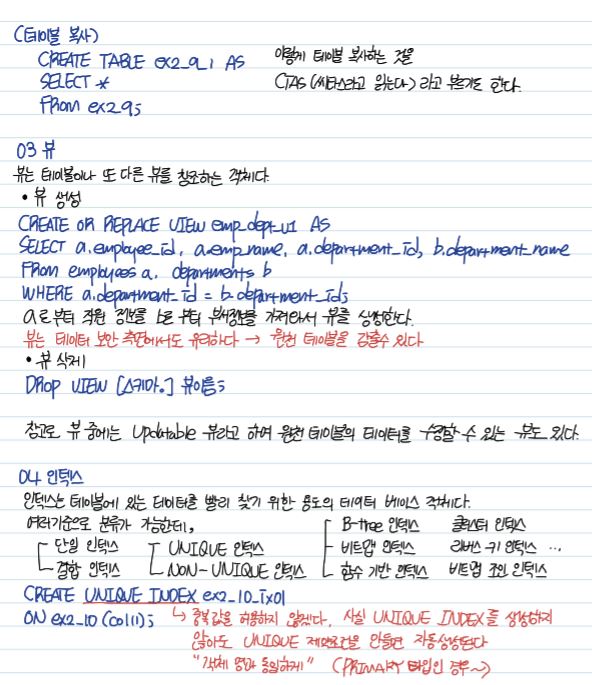 (테이블 복사)
CREATE TABLE ex2_9_1 AS 이렇게 테이블 복사하는 것을
SELECT * CTAS (씨타스라고 읽는다) 라고 부르기도 한다.
FROM ex2_9;
03 뷰
뷰는 테이블이나 또 다른 뷰를 참조하는 객체다.
• 뷰 생성
CREATE OR REPLACE VIEW emp_dept_v1 AS
SELECT a.employee_id, a.emp_name, a.department_id, b.department_name
FROM employees a, departments b
WHERE a.department_id = b.department_id;
a로부터 직원 정보를 b로 부터 부서정보를 가져와서 뷰를 생성한다.
뷰는 데이터 보안 측면에서도 유리하다 → 원천 테이블을 감출수 있다
• 뷰 삭제
DROP VIEW [스키마.] 뷰이름;
참고로 뷰 중에는 Updatable 뷰라고 하여 원천 테이블의 데이터를 수정할 수 있는 뷰도 있다.
04 인덱스
인덱스는 테이블에 있는 데이터를 빨리 찾기 위한 용도의 데이터 베이스 객체다.
여러기준으로 분류가 가능한데, B-tree 인덱스 클러스터 인덱스
단일 인덱스 UNIQUE 인덱스 비트맵 인덱스 리버스 키 인덱스 ...
결합 인덱스 NON-UNIQUE 인덱스 함수 기반 인덱스 비트맵 조인 인덱스
CREATE UNIQUE INDEX ex2_10_ix01
ON ex2_10 (col11); ↳ 중복값을 허용하지 않겠다. 사실 UNIQUE INDEX를 생성하지
않아도 UNIQUE 제약조건을 만들면 자동생성된다
"객체 명과 동일하게" (PRIMARY 타입인 경우~)